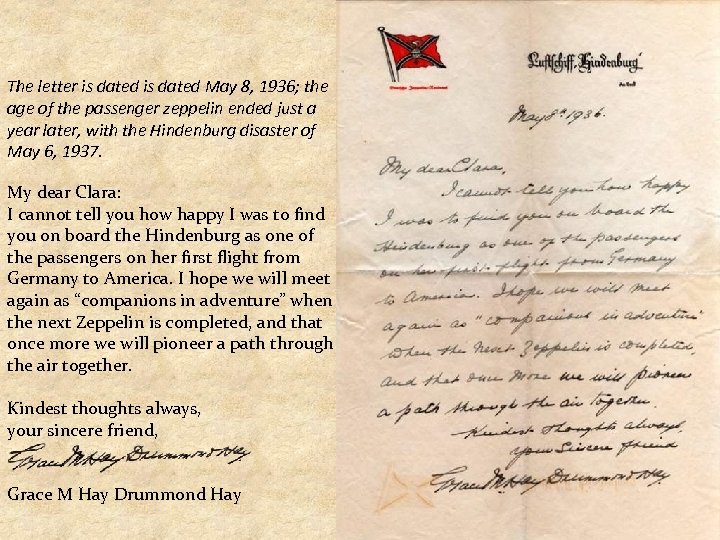 The letter is dated is dated May 8, 1936; the
age of the passenger zeppelin ended just a
year later, with the Hindenburg disaster of
May 6, 1937.
My dear Clara:
I cannot tell you how happy I was to find
you on board the Hindenburg as one of
the passengers on her first flight from
Germany to America. I hope we will meet
again as “companions in adventure” when
the next Zeppelin is completed, and that
once more we will pioneer a path through
the air together.
Kindest thoughts always,
your sincere friend,
Grace M Hay Drummond Hay
Grace M Hay Drummond Hay
Luftschiff „Hindenburg“
May 8th 1936.
My dear Clara,
I cannot tell you how happy
I was to find you on board the
Hindenburg as one of the passengers
on her first flight from Germany
to America. I hope we will meet
again as "companions in adventure"
when the next Zeppelin is completed,
and that once more we will pioneer
a path through the air together.
Kindest thoughts always,
your sincere friend
Grace M Hay Drummond Hay